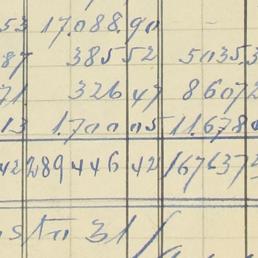 53 17.088.90
87 385 52 5035.3
71 326 47 86072
13 1.700 05 11.678
42 289 446 42 167637
31